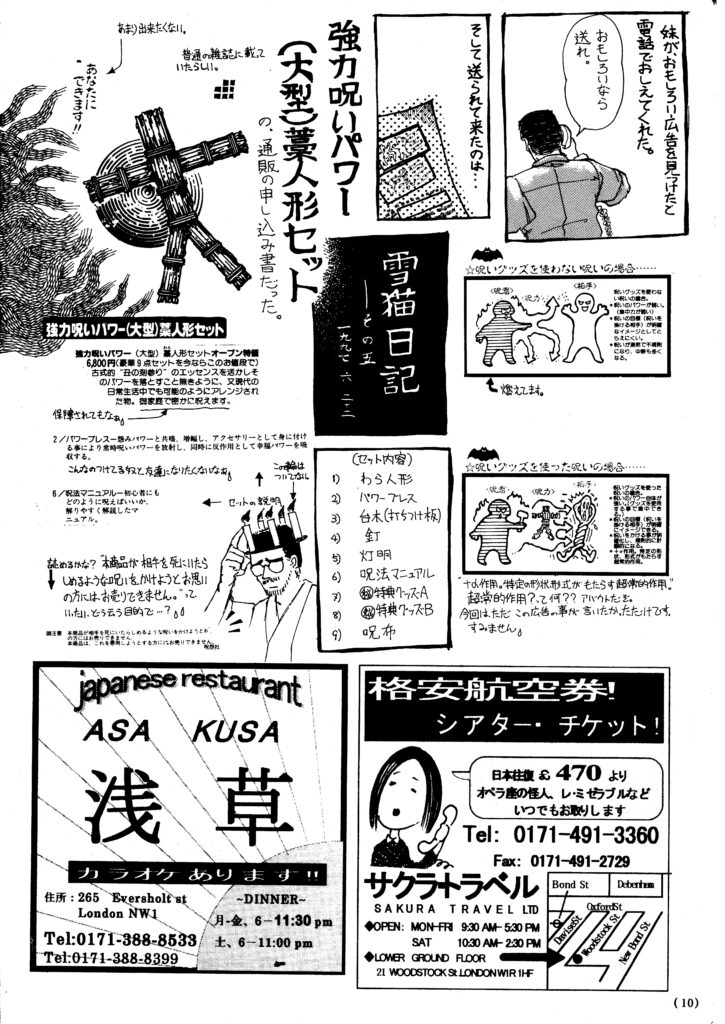 妹が、おもしろい広告を見つけたと
電話でおしえてくれた。
おもしろいなら
送れ。
そして送られて来たのは…
強力呪いパワー
(大型)藁人形セット
の、通販の申し込み書だった。
あまり出来たくない。
普通の雑誌に載って
いたらしい。
あなたに
できます!!
雪猫日記
その五
一九九七 六 二十二
強力呪いパワー(大型)藁人形セット
強力呪いパワー(大型)藁人形セットオープン特価
6,800円(豪華9点セットを今ならこのお値段で)
古式的“丑の刻参り”のエッセンスを活かしそ
のパワーを落とすこと無きように、又現代の
日常生活中でも可能のようにアレンジされ
た物。御家庭で密かに呪えます。
保障されてもなぁ。
2/パワーブレスー怨みパワーと共鳴、増幅し、アクセサリーとして身に付け
る事により常時呪いパワーを放射し、同時に反作用として幸福パワーを吸
収する。
こんなのつけてる奴と友達になりたくないなぁ。
6/呪法マニュアルー初心者にも
どのように呪えばいいか、
解りやすく解説したマ
ニュアル。
←セットの説明
この輪は
ついてない。
読めるかな?“本商品が相手を死にいたら
しめるような呪いをかけようとお思い
の方にはお売りできません。”って
いったい、どう云う目的で…?
御注意 本商品が相手を死にいたらしめるような呪いをかけようとお…
の方にはお売りできません。
呪怨社
(セット内容)
1) わら人形
2) パワーブレス
3) 台木(打ちつけ板)
4) 釘
5) 灯明
6) 呪法マニュアル
7) ㊙特典グッズ-A
8) ㊙特典グッズ-B
9) 呪布
☆呪いグッズを使わない呪いの場合……
〈呪者〉
〈呪力〉
〈相手〉
●呪いグッズを使わな
い呪いの場合。
●呪いのパワーが弱い。
(集中力が弱い)
●呪いの目標(呪いを
掛ける相手)が明確
なイメージとしてと
らえにくい。
●呪いが漠然で不規則
になり、中断も多く
なる。
燃えてます。
☆呪いグッズを使った呪いの場合……
〈呪者〉
〈呪力〉
〈相手〉
●呪いグッズを使った
呪いの場合。
“+α作用。“特定の形状、形式がもたらす超常的作用。”
超常的作用?って何??アバウトだな。
今回はただこの広告の事が言いたかっただけです。
すみません。
japanese restaurant
ASA KUSA
浅草
カラオケあります!!
住所:265 Eversholt st
London NW1
Tel:0171-388-8533
Tel:0171-388-8399
~DINNER~
月-金、6-11:30 pm
土、6-11:00 pm
格安航空券!
シアター・チケット!
日本往復 £470 より
オペラ座の怪人、レ・ミゼラブルなど
いつでもお取りします
Tel: 0171-491-3360
Fax: 0171-491-2729
サクラトラベル
SAKURA TRAVEL LTD
◆OPEN: MON-FRI 9:30 AM-5:30 PM
SAT 10:30 AM-2:30 PM
◆LOWER GROUND FLOOR
21 WOODSTOCK St.LONDON W1R 1HF
Bond St
Debenham
Oxford St
Davies St
Woodstock St
New Bond St
(10)